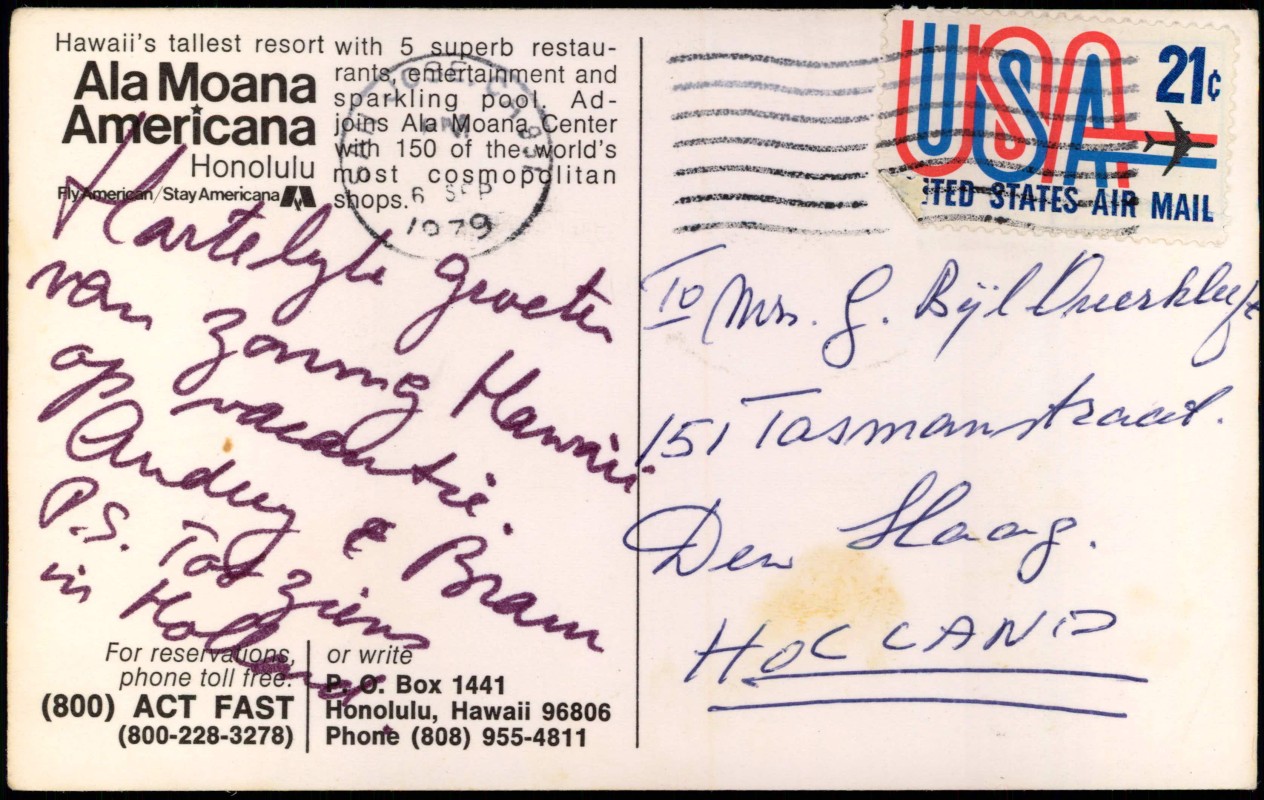 Hawaii's tallest resort
Ala Moana
Americana
Honolulu
Fly American/Stay Americana
with 5 superb restau-
rants, entertainment and
sparkling pool. Ad-
joins Ala Moana Center
with 150 of the world's
most cosmopolitan
shops.
6 SEP
1979
USA
21¢
ITED STATES AIR MAIL
Hartelyk groeten
van zonnig Hawaii
op vacantie.
Andrey & Bram
P.S. Tot ziens
in Holland.
To Mrs. G. Bijl
151 Tasmanstraat.
Den Haag.
HOLLAND
For reservations,
phone toll free:
(800) ACT FAST
(800-228-3278)
or write
P. O. Box 1441
Honolulu, Hawaii 96806
Phone (808) 955-4811